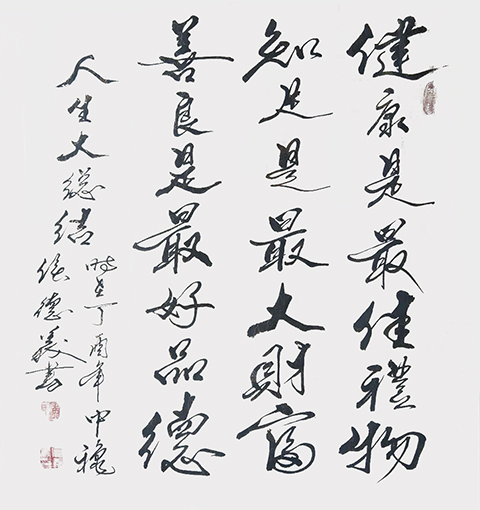 健康是最佳禮物
知足是最大財富
善良是最好品德
人生大總結
時在丁酉年中穐
張德義書